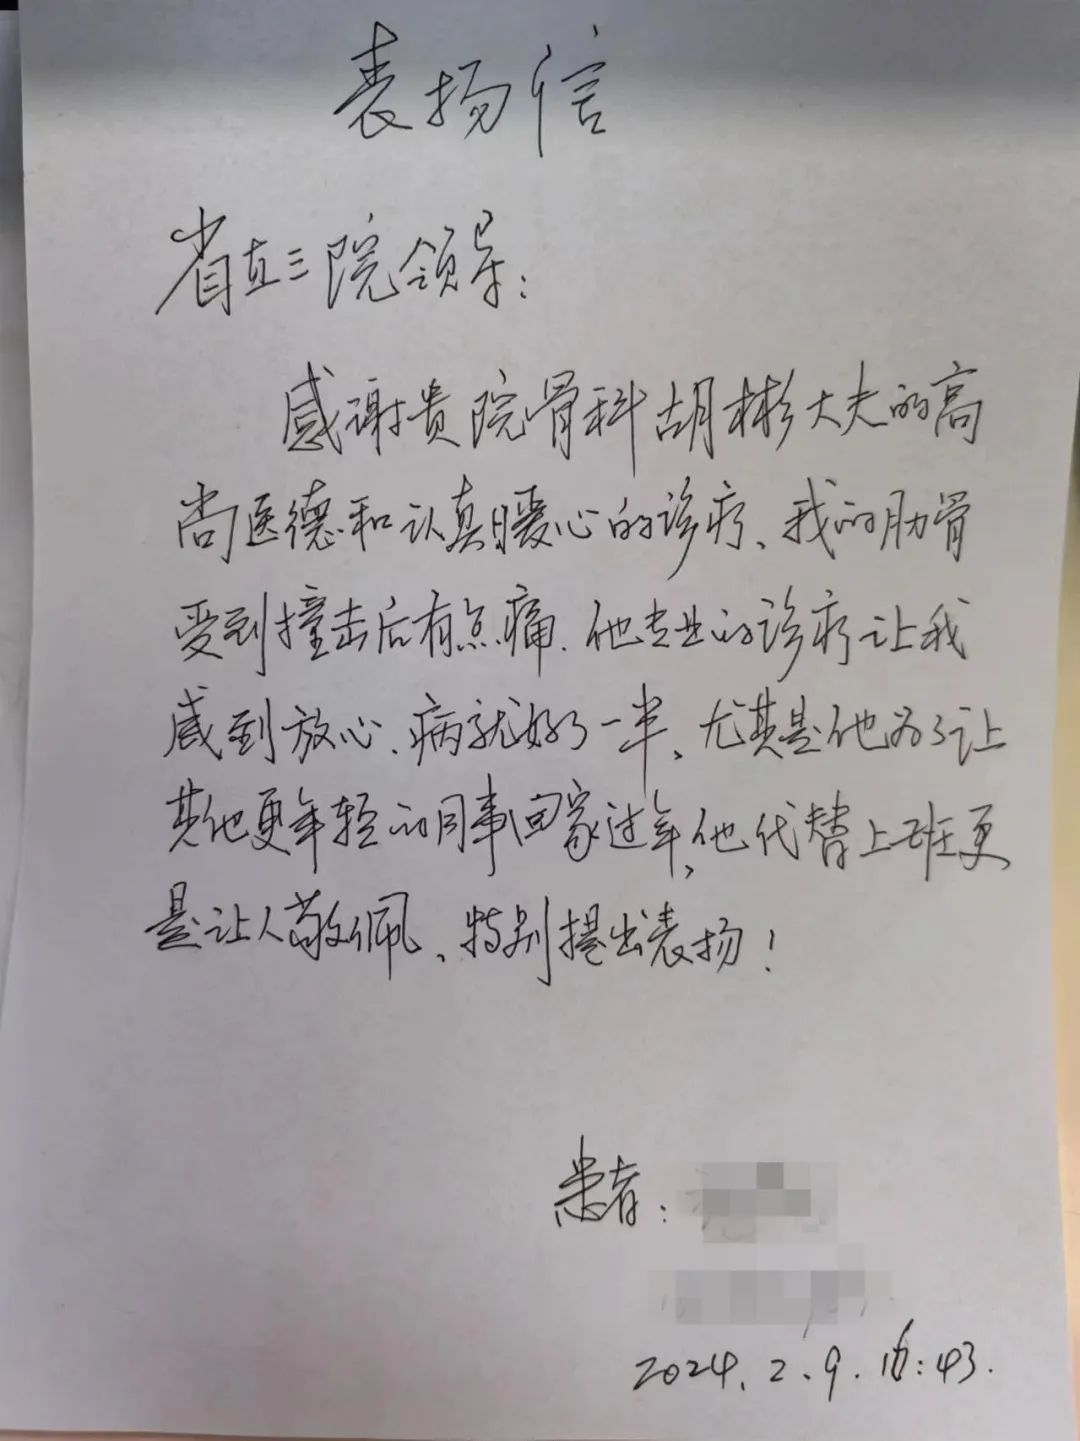 表扬信
省立三院领导：
感谢贵院骨科胡彬大夫的高
尚医德和认真暖心的诊疗、我的肋骨
受到撞击后有点痛.他专业的诊疗让我
感到放心、病就好了一半、尤其是他为了让
其他更年轻的同事回家过年,他代替上班更
是让人敬佩、特别提出表扬！
患者：
2024.2.9.16:43.